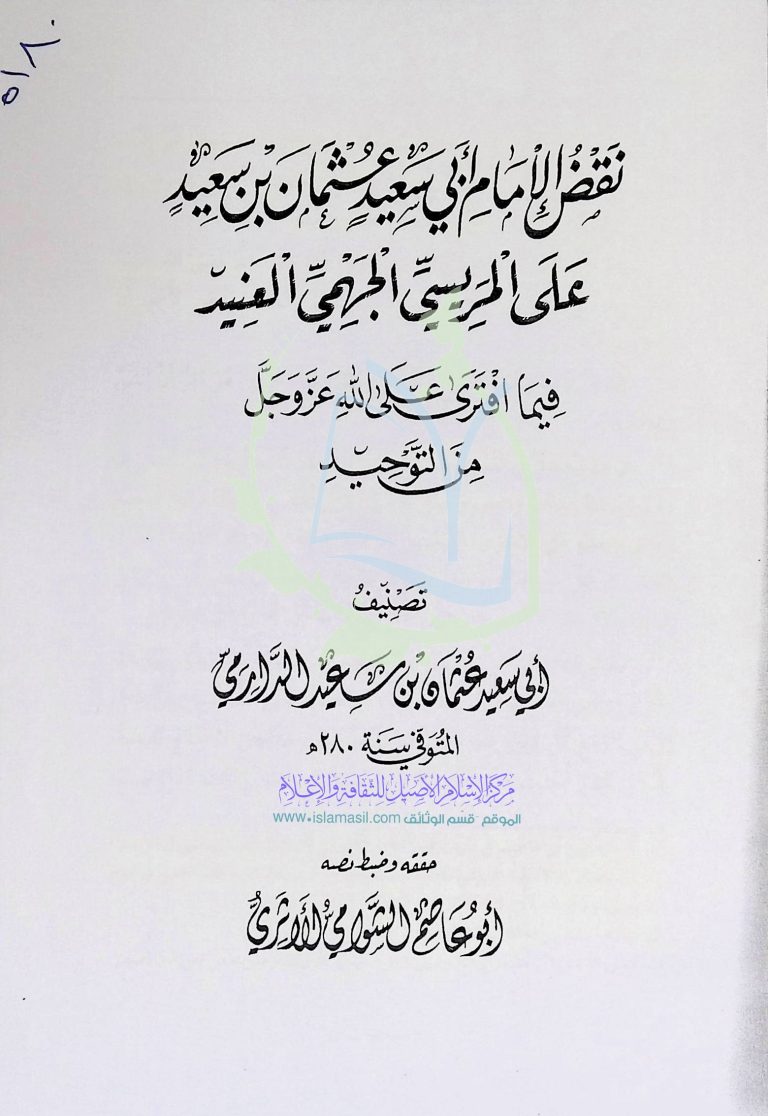 نَقْضُ الإِمَامِ أَبِي سَعِيدٍ عُثْمَانَ بْنِ سَعِيدٍ
عَلَى المَرِيسِيِّ الجَهْمِيِّ العَنِيدِ
فِيمَا افْتَرَى عَلَى اللهِ عَزَّ وَجَلَّ
مِنَ التَّوْحِيدِ
تَصْنِيفُ
أبي سعيد عثمان بن سعيد الدارمي
المتوفي سنة ٢٨٠هـ
مركز الإسلام الأصيل للثقافة والإعلام
الموقع - قسم الوثائق www.islamasil.com
حققه وضبط نصه
أبو عاصم الشوامي الأثري